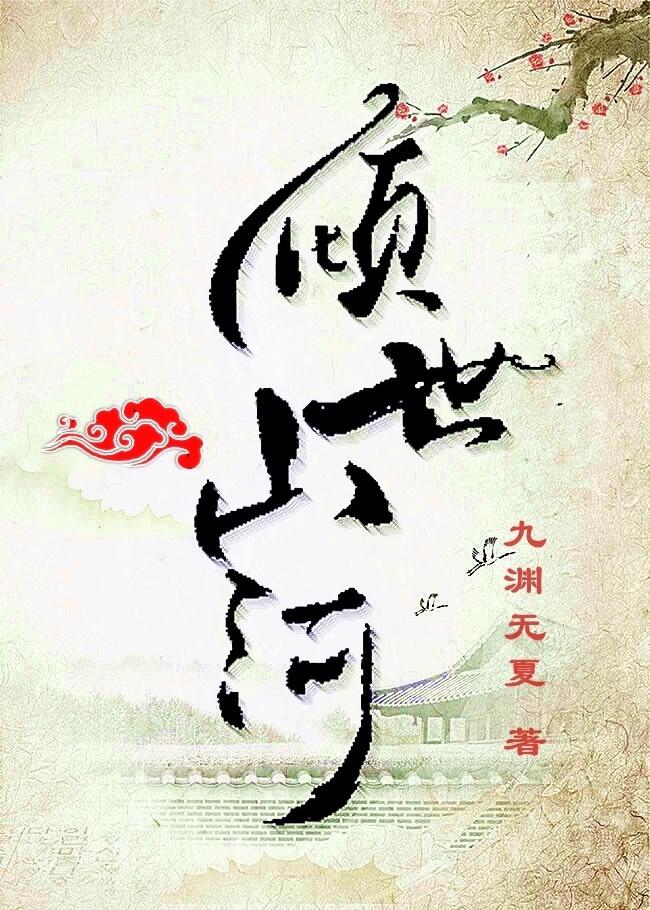 倾世山河
九渊无夏 著